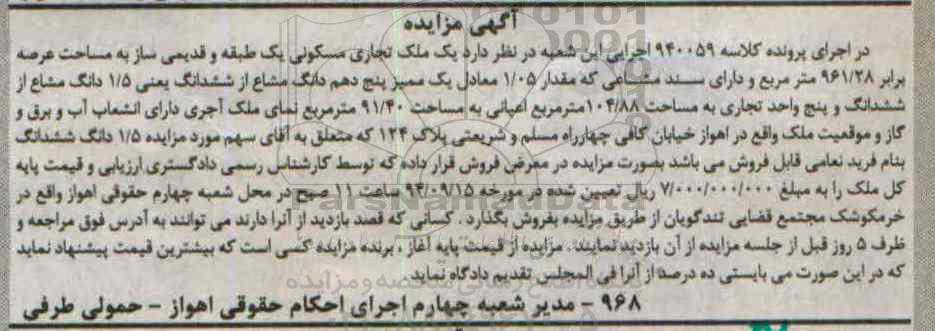 آگهی مزایده
در اجرای پرونده کلاسه ۹۴۰۰۵۹ اجرایی این شعبه در نظر دارد یک ملک تجاری مسکونی یک طبقه و قدیمی ساز به مساحت عرصه
برابر ۹۶۱/۲۸ متر مربع و دارای سند مشاعی که مقدار ۱/۰۵ معادل یک ممیز پنج دهم دانگ مشاع از ششدانگ یعنی ۱/۵ دانگ مشاع از
ششدانگ و پنج واحد تجاری به مساحت ۱۰۴/۸۸ مترمربع اعیانی به مساحت ۹۱/۴۰ مترمربع نمای ملک آجری دارای انشعاب آب و برق و
گاز و موقعیت ملک واقع در اهواز خیابان کافی چهارراه مسلم و شریعتی پلاک ۱۲۴ که متعلق به آقای سهم مورد مزایده ۱/۵ دانگ ششدانگ
بنام فرید نعامی قابل فروش می باشد بصورت مزایده در معرض فروش قرار داده که توسط کارشناس رسمی دادگستری ارزیابی و قیمت پایه
کل ملک را به مبلغ ۷/۰۰۰/۰۰۰/۰۰۰ ریال تعیین شده در مورخه ۹۴/۰۹/۱۵ ساعت ۱۱ صبح در محل شعبه چهارم حقوقی اهواز واقع در
خرمکوشک مجتمع قضایی تندگویان از طریق مزایده بفروش بگذارد . کسانی که قصد بازدید از آنرا دارند می توانند به آدرس فوق مراجعه و
ظرف ۵ روز قبل از جلسه مزایده از آن بازدید نمایند. مزایده از قیمت پایه آغاز ، برنده مزایده کسی است که بیشترین قیمت پیشنهاد نماید
که در این صورت می بایستی ده درصد از آنرا فی المجلس تقدیم دادگاه نماید.
۹۶۸ - مدیر شعبه چهارم اجرای احکام حقوقی اهواز - حمولی طرفی